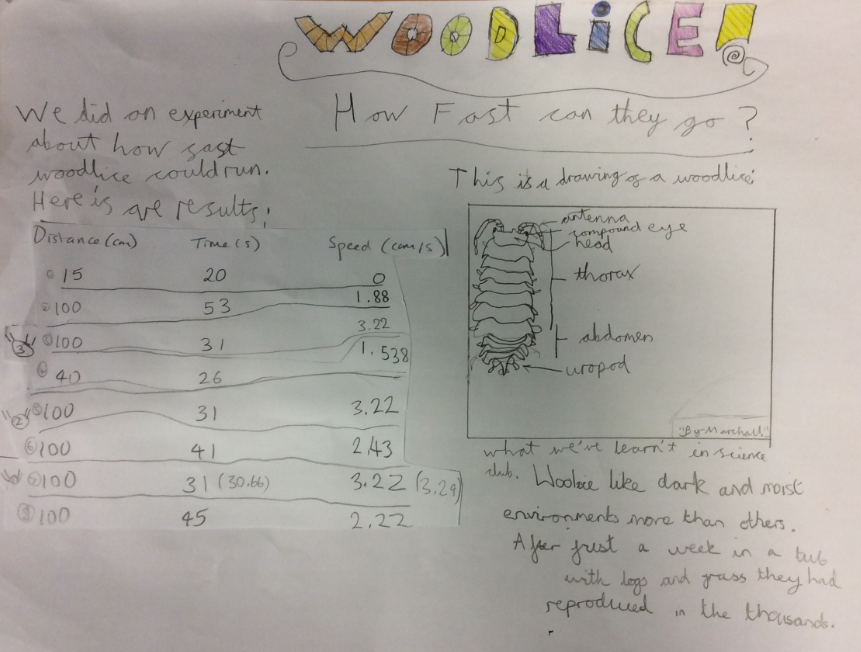 WOODLiCE!
How Fast can they go?
We did an experiment
about how fast
woodlice could run.
Here is are results:
Distance (cm) Time (s) Speed (cm/s)
① 15 20 0
② 100 53 1.88
③ 100 31 3.22
④ 40 26 1.538
⑤ 100 31 3.22
⑥ 100 41 2.43
⑦ 100 31 (30.66) 3.22 (3.29)
⑧ 100 45 2.22
"3"
"2"
This is a drawing of a woodlice:
antenna
compound eye
head
thorax
abdomen
uropod
"By Marshall"
what we've learn't in science
club. Woodlice like dark and moist
environments more than others.
After just a week in a tub
with logs and grass they had
reproduced in the thousands.